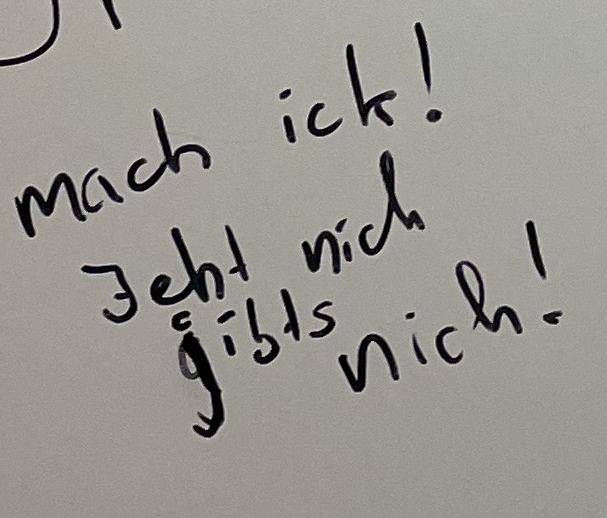 mach ick!
Jeht nich
gibts nich!